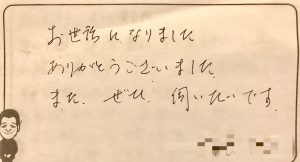 お世話になりました
ありがとうございました
また、ぜひ、伺いたいです。